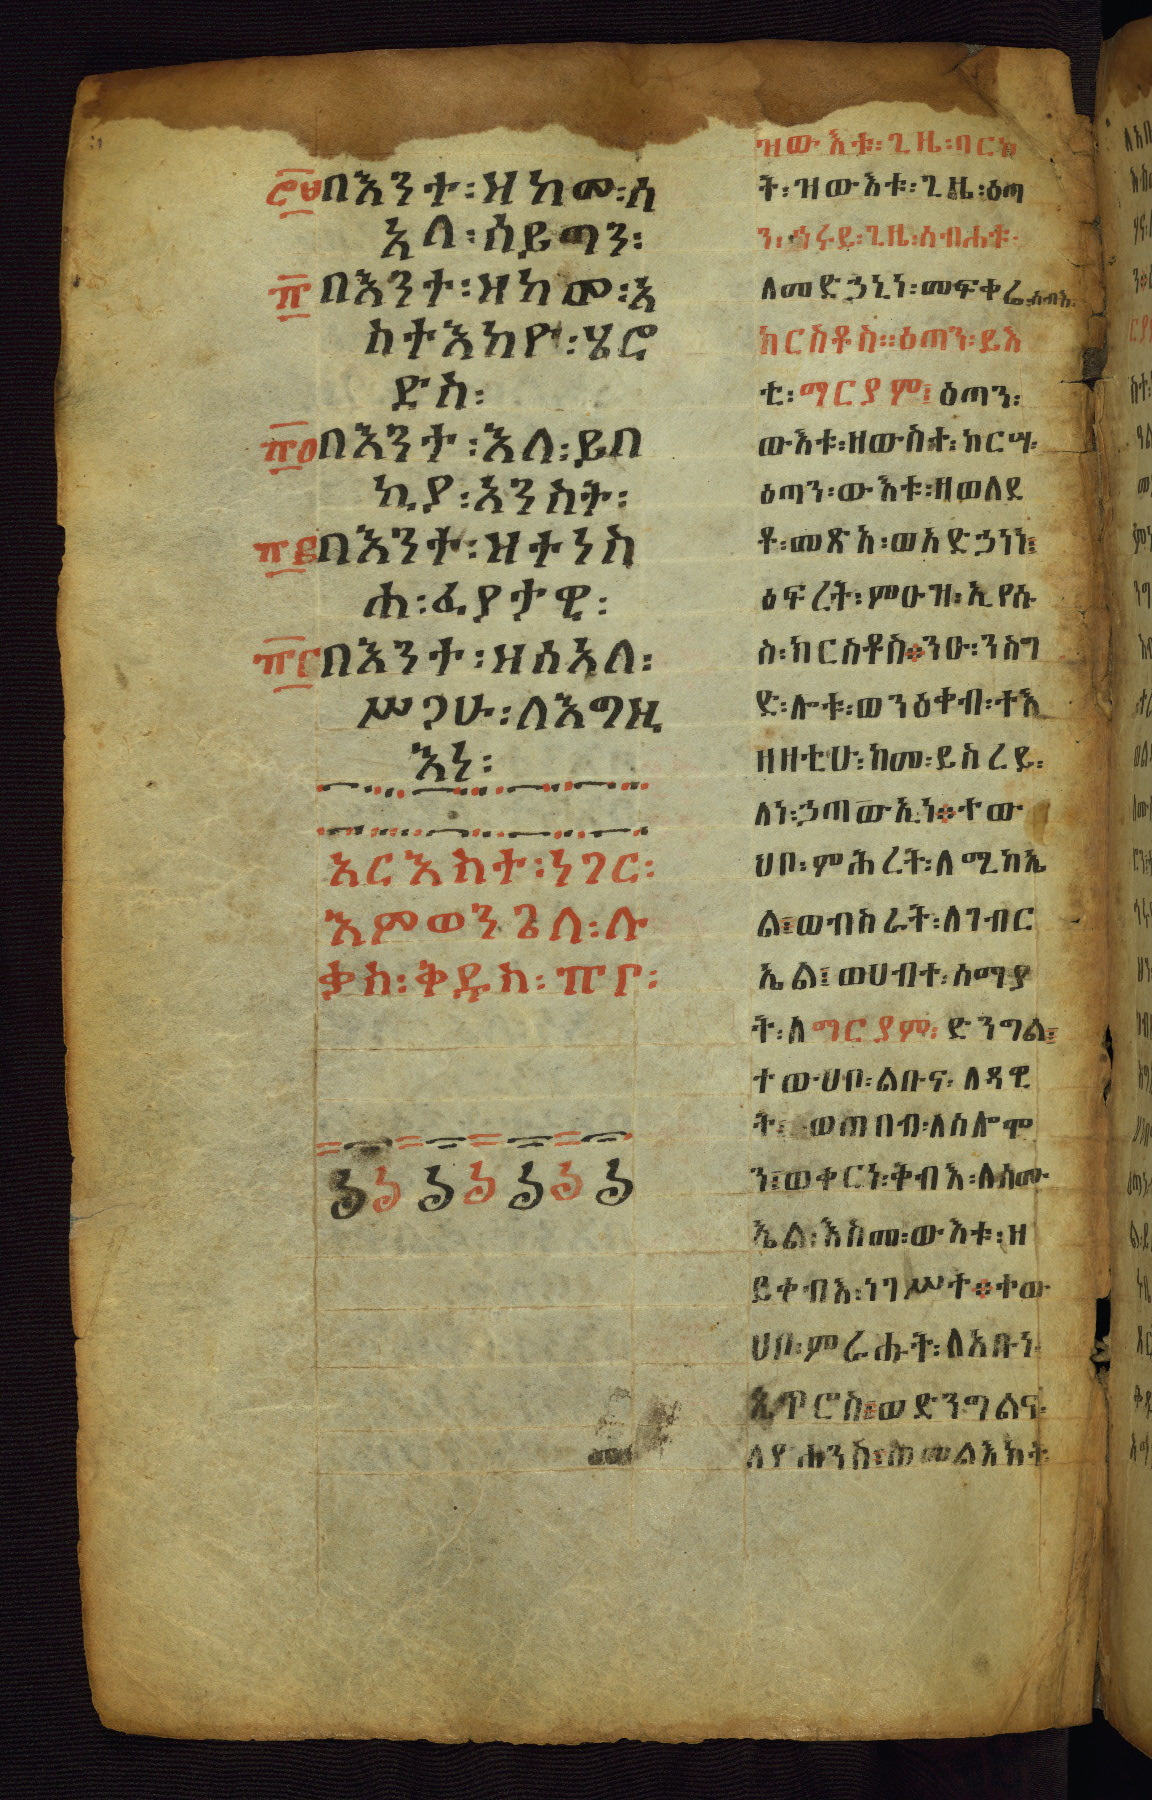 ፸፱ በእንተ ፡ ዘከመ ፡ ሰ
አለ ፡ ሰይጣን ፡
፹ በእንተ ፡ ዘከመ ፡ አ
ስተአከየ ፡ ሄሮ
ድስ ፡
፹፩ በእንተ ፡ እለ ፡ ይበ
ኪያ ፡ አንስት ፡
፹፪ በእንተ ፡ ዘተነስ
ሐ ፡ ፈያታዊ ፡
፹፫ በእንተ ፡ ዘሰአለ ፡
ሥጋሁ ፡ ለእግዚ
እነ ፡
አርእስተ ፡ ነገር ፡
እምወንጌለ ፡ ሉ
ቃስ ፡ ቅዱስ ፡ ፹፫ ፡
ዝውእቱ ፡ ጊዜ ፡ ባርኮ
ት ፡ ዝውእቱ ፡ ጊዜ ፡ ዕጣ
ን ፡ ኅሩይ ፡ ጊዜ ፡ ሰብሐቱ ፡
ለመድኃኒነ ፡ መፍቀሬ ፡ ሰብእ ፡
ክርስቶስ ። ዕጣን ፡ ይእ
ቲ ፡ ማርያም ፤ ዕጣን ፡
ውእቱ ፡ ዘውስተ ፡ ከርሣ ፡
ዕጣን ፡ ውእቱ ፡ ዘወለደ
ቶ ፡ መጽአ ፡ ወአድኃነነ ፤
ዕፍረት ፡ ምዑዝ ፡ ኢየሱ
ስ ፡ ክርስቶስ ። ንዑ ፡ ንስግ
ድ ፡ ሎቱ ፡ ወንዕቀብ ፡ ተእ
ዘዘቲሁ ፡ ከመ ፡ ይስረይ ፡
ለነ ፡ ኃጣውኢነ ። ተው
ህቦ ፡ ምሕረት ፡ ለሚካኤ
ል ፤ ወብስራት ፡ ለገብር
ኤል ፤ ወሀብተ ፡ ሰማያ
ት ፡ ለማርያም ፡ ድንግል ፤
ተውህቦ ፡ ልቡና ፡ ለዳዊ
ት ፤ ወጠበብ ፡ ለሰሎሞ
ን ፤ ወቀርነ ፡ ቅብእ ፡ ለሰሙ
ኤል ፡ እስመ ፡ ውእቱ ፡ ዘ
ይቀብእ ፡ ነገሥተ ። ተው
ህቦ ፡ ምራሑት ፡ ለአቡነ ፡
ጴጥሮስ ፤ ወድንግልና ፡
ለዮሐንስ ፤ ወመልእክት